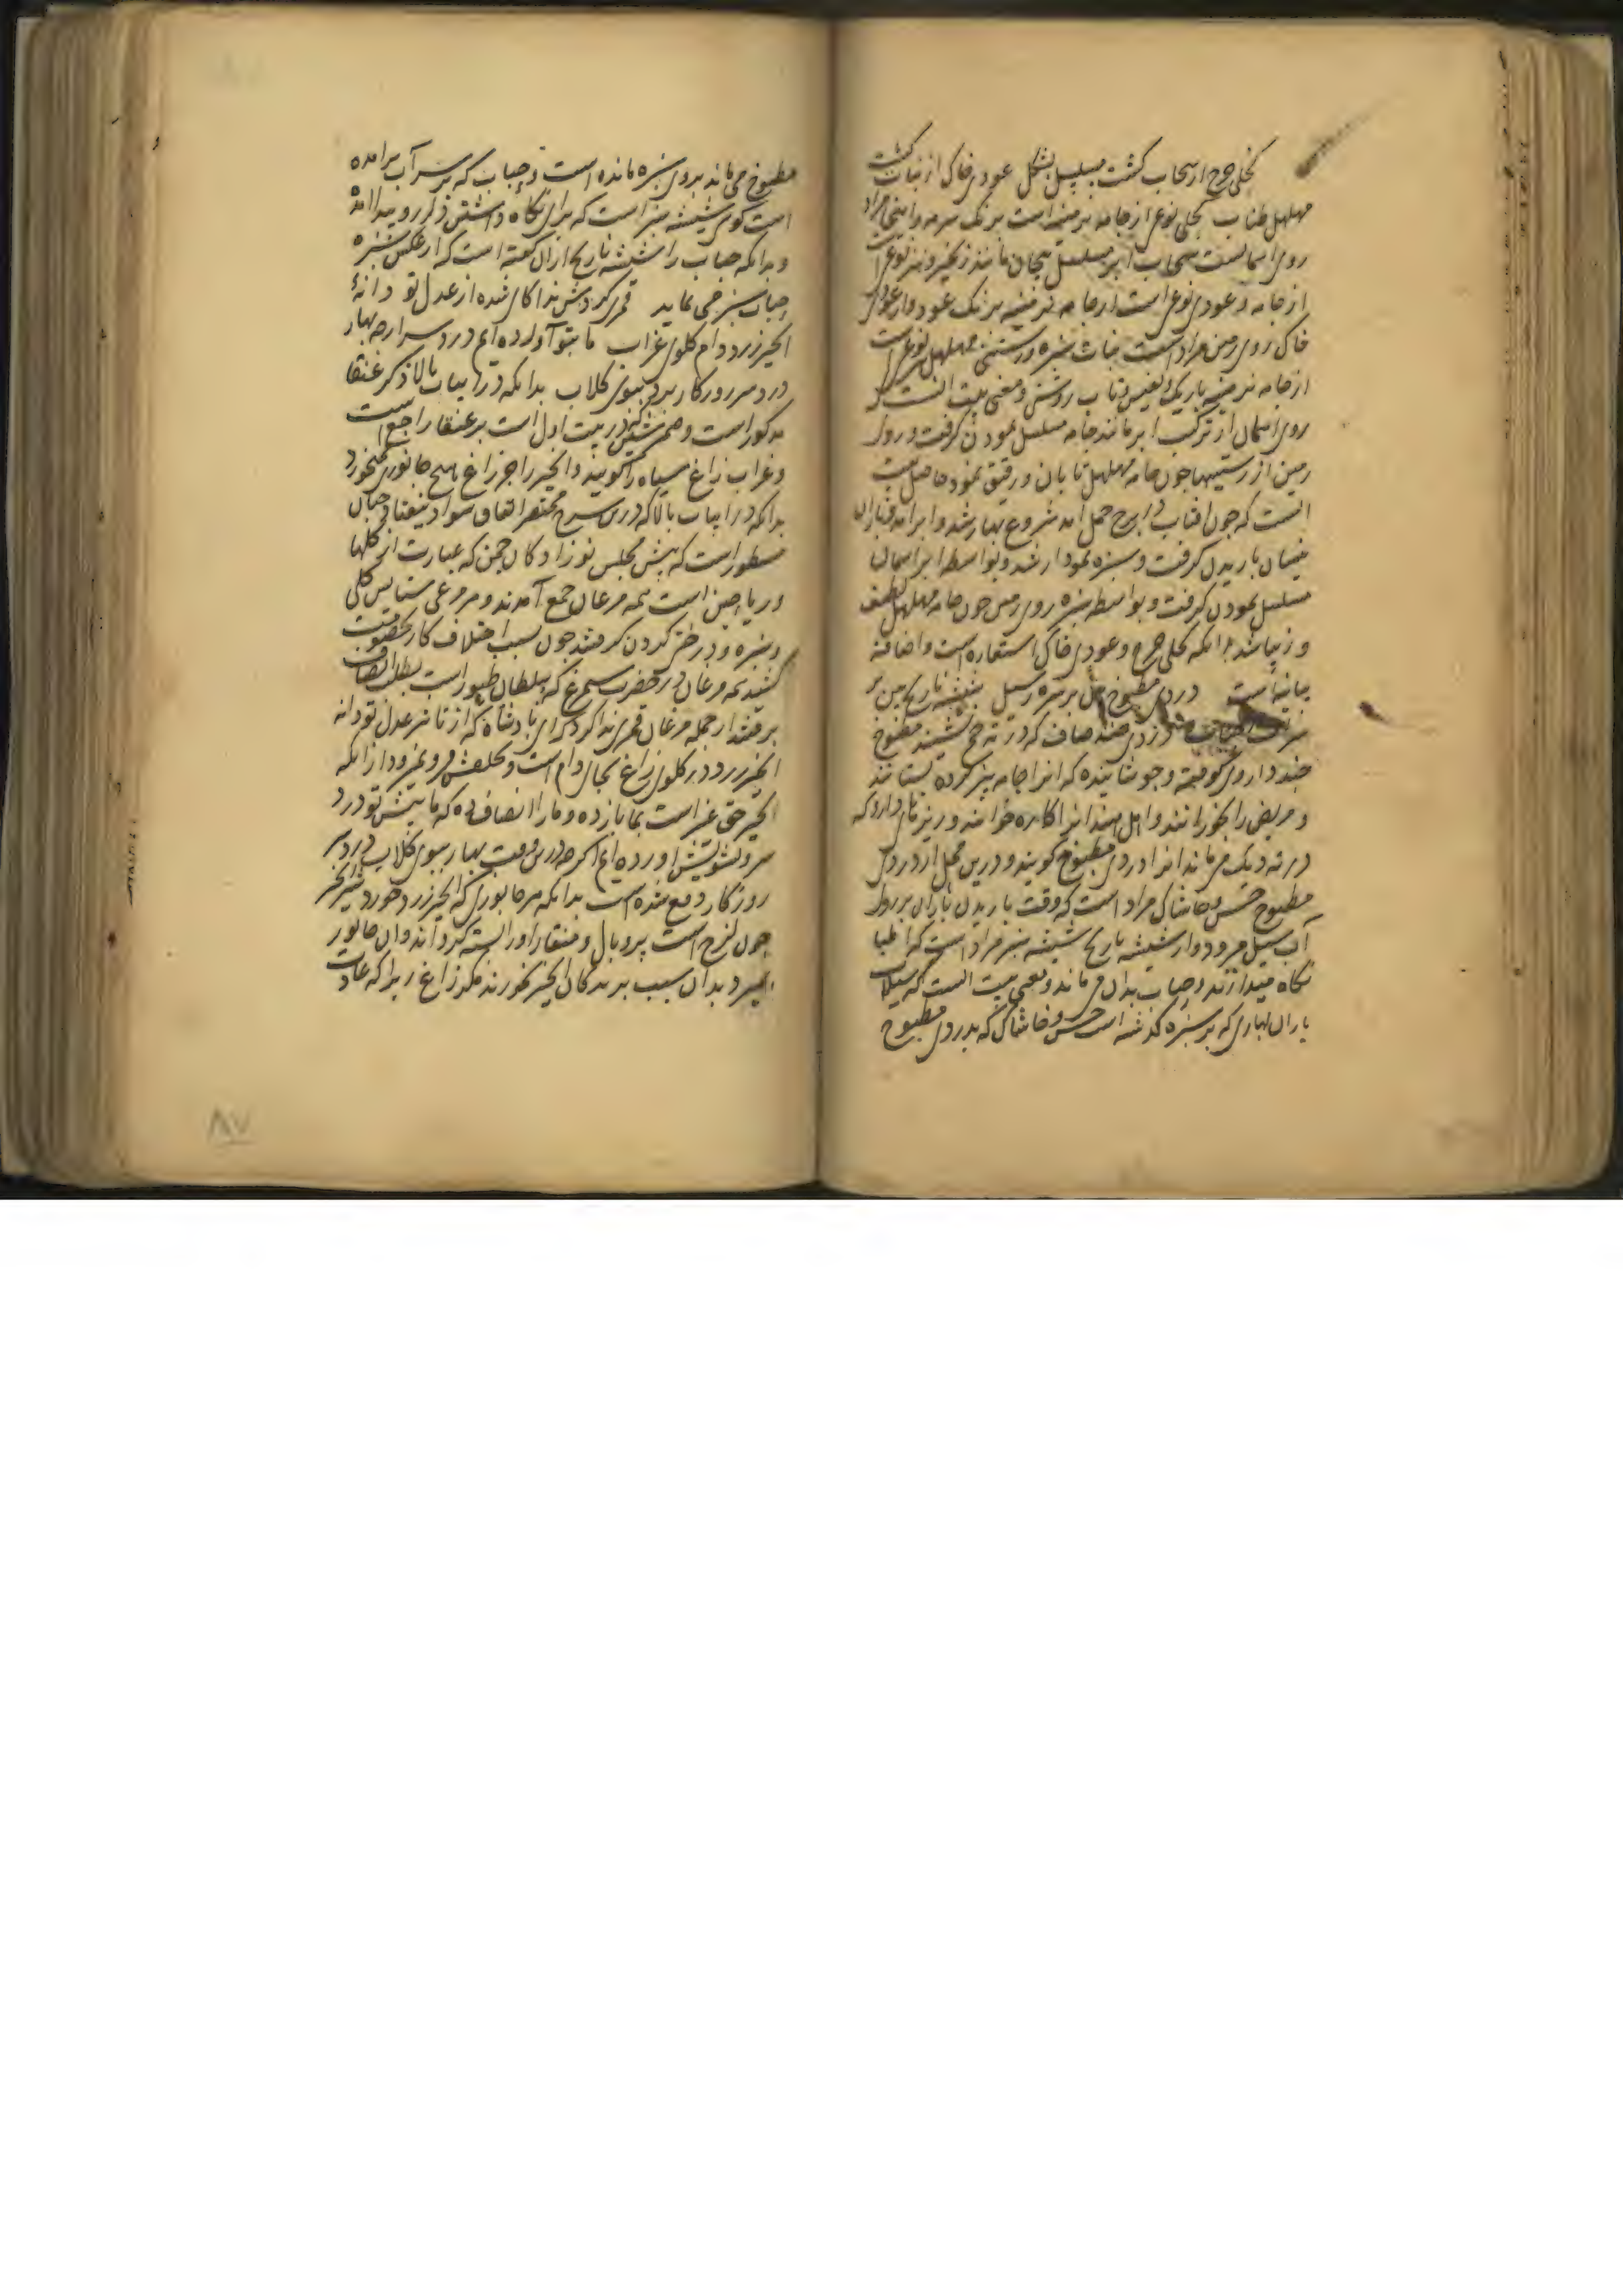 کحلی چرخ از سحاب گشت مسلسل بشکل عودی خاک از نبات گشت
مهلهل طناب کحلی نوعی از جامه برمینه است برنگ سرمه و اینجا مراد
روی اسمانست سحاب ابر مسلسل پیچان مانند زنجیر و نیز نوعی است
از جامه و عودی نوعی است از جامه نرمینه برنگ عود و از عودی
خاک روی زمین مراد است نبات سبزه و رستنی مهلهل نوعی است
از جامه نرمینه باریک و نفیس تاب روشن و معنی بیت انست که
روی اسمان از ترکیب ابر مانند جامه مسلسل نمودن گرفت و روی
زمین از رستنیها چون جامه مهلهل تابان و رقیق نمود حاصل بیت
انست که چون افتاب در برج حمل امد شروع بهار شد و ابر امد و باران
نیسان باریدن گرفت و سبزه نمودار شد و بواسطه ابر اسمان
مسلسل نمودن گرفت و بواسطه سبزه روی زمین چون جامه مهلهل لطیف
و زیبا شد بدانکه کحلی چرخ و عودی خاک استعاره است و اضافه
بیانیه است دردی مطبوخ بین بر سبزه ز سیل شیشه نارنج بین بر
دردی ضد صاف که در ته جمع نشیند مطبوخ
چند داروی کوفته و جوشانیده که انرا جامه بیز کرده بستانند
و مریض را بخورانند و اهل هند انرا کاره خوانند و ریزهای دارو که
در ته دیک می ماند انرا دردی مطبوخ کویند و درین محل از دردی
مطبوخ خس و خاشاک مراد است که وقت باریدن باران بر روی
آب سیل میرود و از شیشه نارنج شیشه سبز مراد است که اطبا
نگاه میدارند و حباب بدان می ماند و معنی بیت انست که سیلاب
باران بهاری که بر سبزه گذشته است خس و خاشاک که بدردی مطبوخ
مطبوخ می ماند بروی سبزه مانده است و حباب که بر سر آب برامده
است گوی شیشه سبز است که برای نگاه داشتن
و بدانکه حباب را شیشه نارنج ازان گفته است که از عکس سبزه
حباب سبز می نماید قمری کردش ندا کای شده از عدل تو دانهٔ
انجیر زرد دام گلوی غراب ما بتو آورده ایم درد سر ار چه بهار
درد سر روزکار برد ببوی گلاب بدانکه در ابیات بالا ذکر عنقا
مذکور است و ضمیر شین که در بیت اول است بر عنقا راجع است
و غراب زاغ سیاه را گویند و انجیر را جز زاغ هیچ جانوری نمیخورد
بدانکه در ابیات بالا که درین شرح مختصر اتفاق سواد نیفتاد چنان
مسطور است که پیش مجلس نوزادگان چمن که عبارت از گلها
و ریاحین است همه مرغان جمع آمدند و هر مرغی ستایش گلی
و سبزه و درختی کردن گرفتند چون بسبب اختلاف کار بخصومت
کشید همه مرغان در حضرت سیمرغ که سلطان طیور است بطلب انصاف
برفتند از جمله مرغان قمری ندا کرد که ای پادشاه که از تاثیر عدل تو دانه
انجیر زرد در گلوی زاغ بجای دام است و بحلقش فرو نمیرود ازانکه
انجیر حق غیر است بما باز ده و ما را انصاف ده که ما پیش تو درد
سر و تشویش اورده ایم اگرچه درین وقت بهار ببوی گلاب درد سر
روزکار دفع شده است بدانکه هر جانوری که انجیر زرد خورد شیر انجیر
چون لزج است پر و بال و منقار او را بسته گرداند و ان جانور
بمیرد بدان سبب پرندگان انجیر نخورند مگر زاغ زیرا که عادت
۸۷